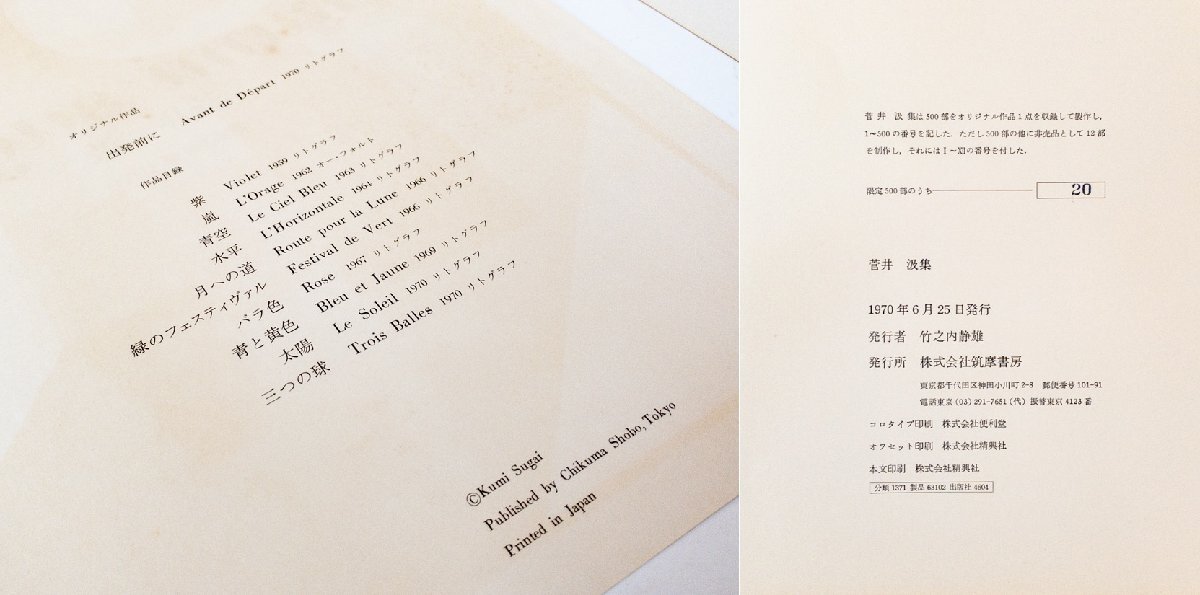 オリジナル作品
出発前に Avant de Départ 1970 リトグラフ
作品目録
紫 Violet 1959 リトグラフ
嵐 L'Orage 1962 オー・フォルト
青空 Le Ciel Bleu 1963 リトグラフ
水平 L'Horizontale 1964 リトグラフ
月への道 Route pour la Lune 1966 リトグラフ
緑のフェスティヴァル Festival de Vert 1966 リトグラフ
バラ色 Rose 1967 リトグラフ
青と黄色 Bleu et Jaune 1969 リトグラフ
太陽 Le Soleil 1970 リトグラフ
三つの球 Trois Balles 1970 リトグラフ
©Kumi Sugai
Published by Chikuma Shobo, Tokyo
Printed in Japan
菅井 汲集は500部をオリジナル作品1点を収録して製作し,
1~500の番号を記した. ただし500部の他に非売品として12部
を制作し, それにはⅠ~Ⅻの番号を付した.
限定500部のうち 20
菅井 汲集
1970年6月25日発行
発行者 竹之内静雄
発行所 株式会社筑摩書房
東京都千代田区神田小川町2-8 郵便番号101-91
電話東京(03)291-7651(代)振替東京4123番
コロタイプ印刷 株式会社便利堂
オフセット印刷 株式会社精興社
本文印刷 株式会社精興社
分類1371 製品63102 出版社4604